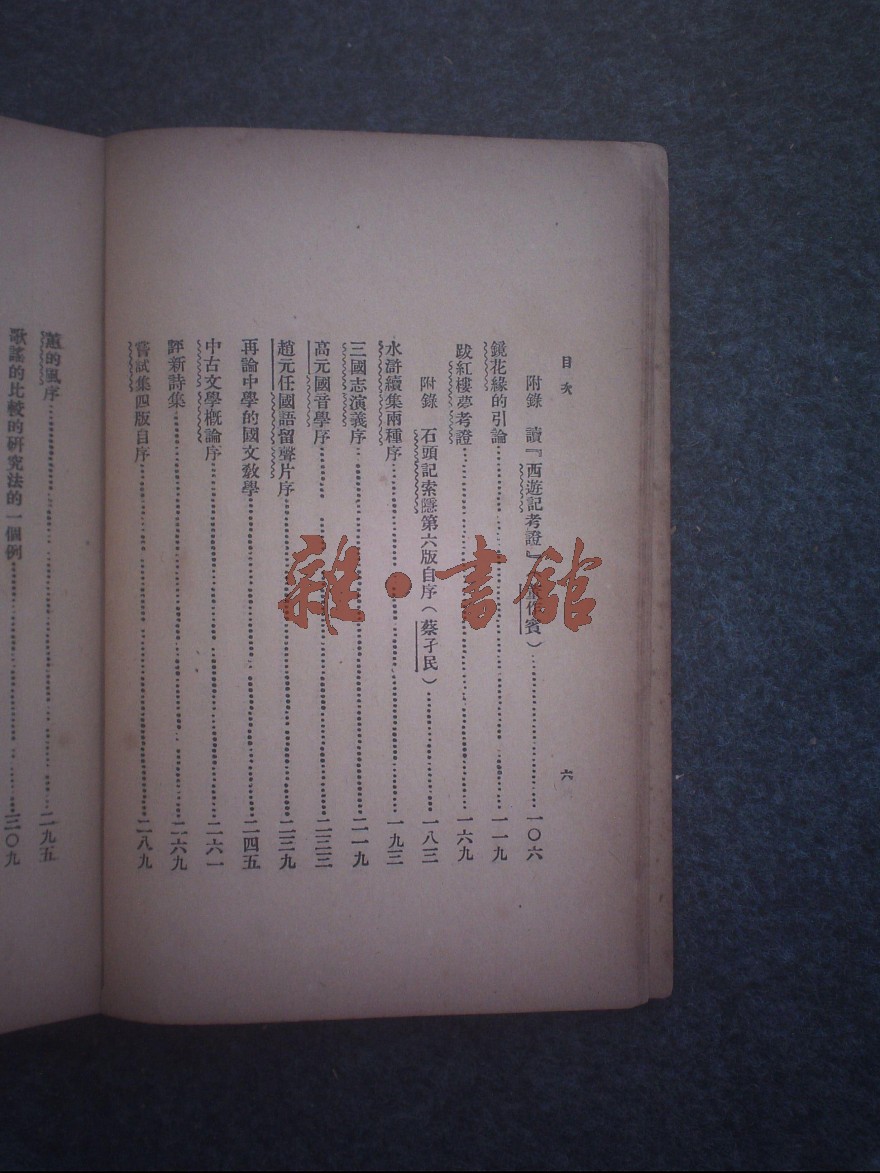 目次
六
附錄 讀『西遊記考證』 作賓)……一〇六
鏡花緣的引論……一一九
跋紅樓夢考證……一六九
附錄 石頭記索隱第六版自序(蔡孑民)……一八三
水滸續集兩種序……一九三
三國志演義序……二一九
高元國音學序……二三三
趙元任國語留聲片序……二三九
再論中學的國文教學……二四五
中古文學概論序……二六一
評新詩集……二六九
嘗試集四版自序……二八九
蕙的風序……二九五
歌謠的比較的研究法的一個例……三〇九
雜·書館